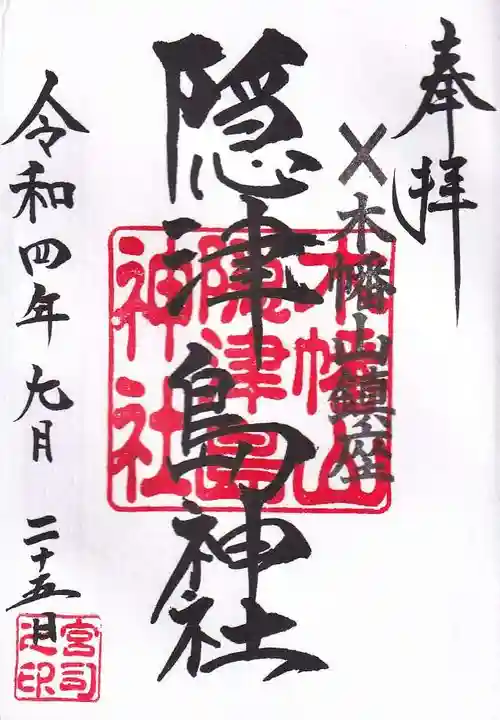 奉拝
〆木幡山鎮座
隠津島神社
木幡山
隠津島
神社
令和四年九月二十五日
宮司
之印